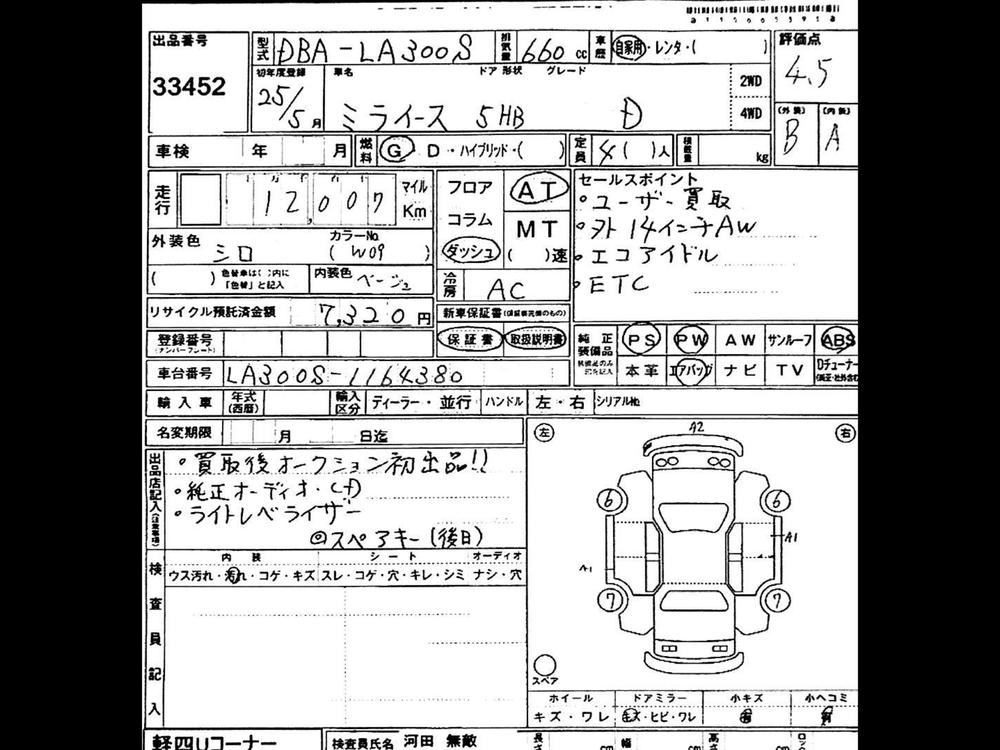 出品番号
33452
型式 DBA-LA300S 排気量 660 cc 車歴 自家用・レンタ・( )
評価点
4.5
初年度登録 車名 ドア 形状 グレード
25/5月 ミライース 5HB D
2WD
4WD
(外装) (内装)
B A
車検 年 月 燃料 G D・ハイブリッド・( ) 定員 4( )人 積載量 kg
走行 12,007 マイル Km
フロア
コラム
ダッシュ
AT
MT
( )速
セールスポイント
・ユーザー買取
・外14インチAW
・エコアイドル
・ETC
外装色 シロ カラーNo. (W09)
( ) 色替車は( )内に「色替」と記入 内装色 ベージュ
冷房 AC
リサイクル預託済金額 7,320円
新車保証書(保証書完備のもの)
保証書 取扱説明書
純正装備品 PS PW AW サンルーフ ABS
本革 エアバッグ ナビ TV Dチューナー
登録番号
(ナンバープレート)
車台番号 LA300S-1164380
輸入車 年式(西暦) 輸入区分 ディーラー・並行 ハンドル 左・右 シリアルNo.
名変期限 月 日迄
出品店記入(注意事項)
・買取後オークション初出品!!
・純正オーディオ・CD
・ライトレベライザー
◎スペアキー(後日)
内装 シート オーディオ
ウス汚れ・汚れ・コゲ・キズ スレ・コゲ・穴・キレ・シミ ナシ・穴
検査員記入
左 右
A2
6 6
A1
A1
7 7
スペア
ホイール ドアミラー 小キズ 小ヘコミ
キズ・ワレ キズ・ヒビ・ワレ 有 有
軽四Uコーナー 検査員氏名 河田 無敵 長さ cm 幅 cm 高さ cm